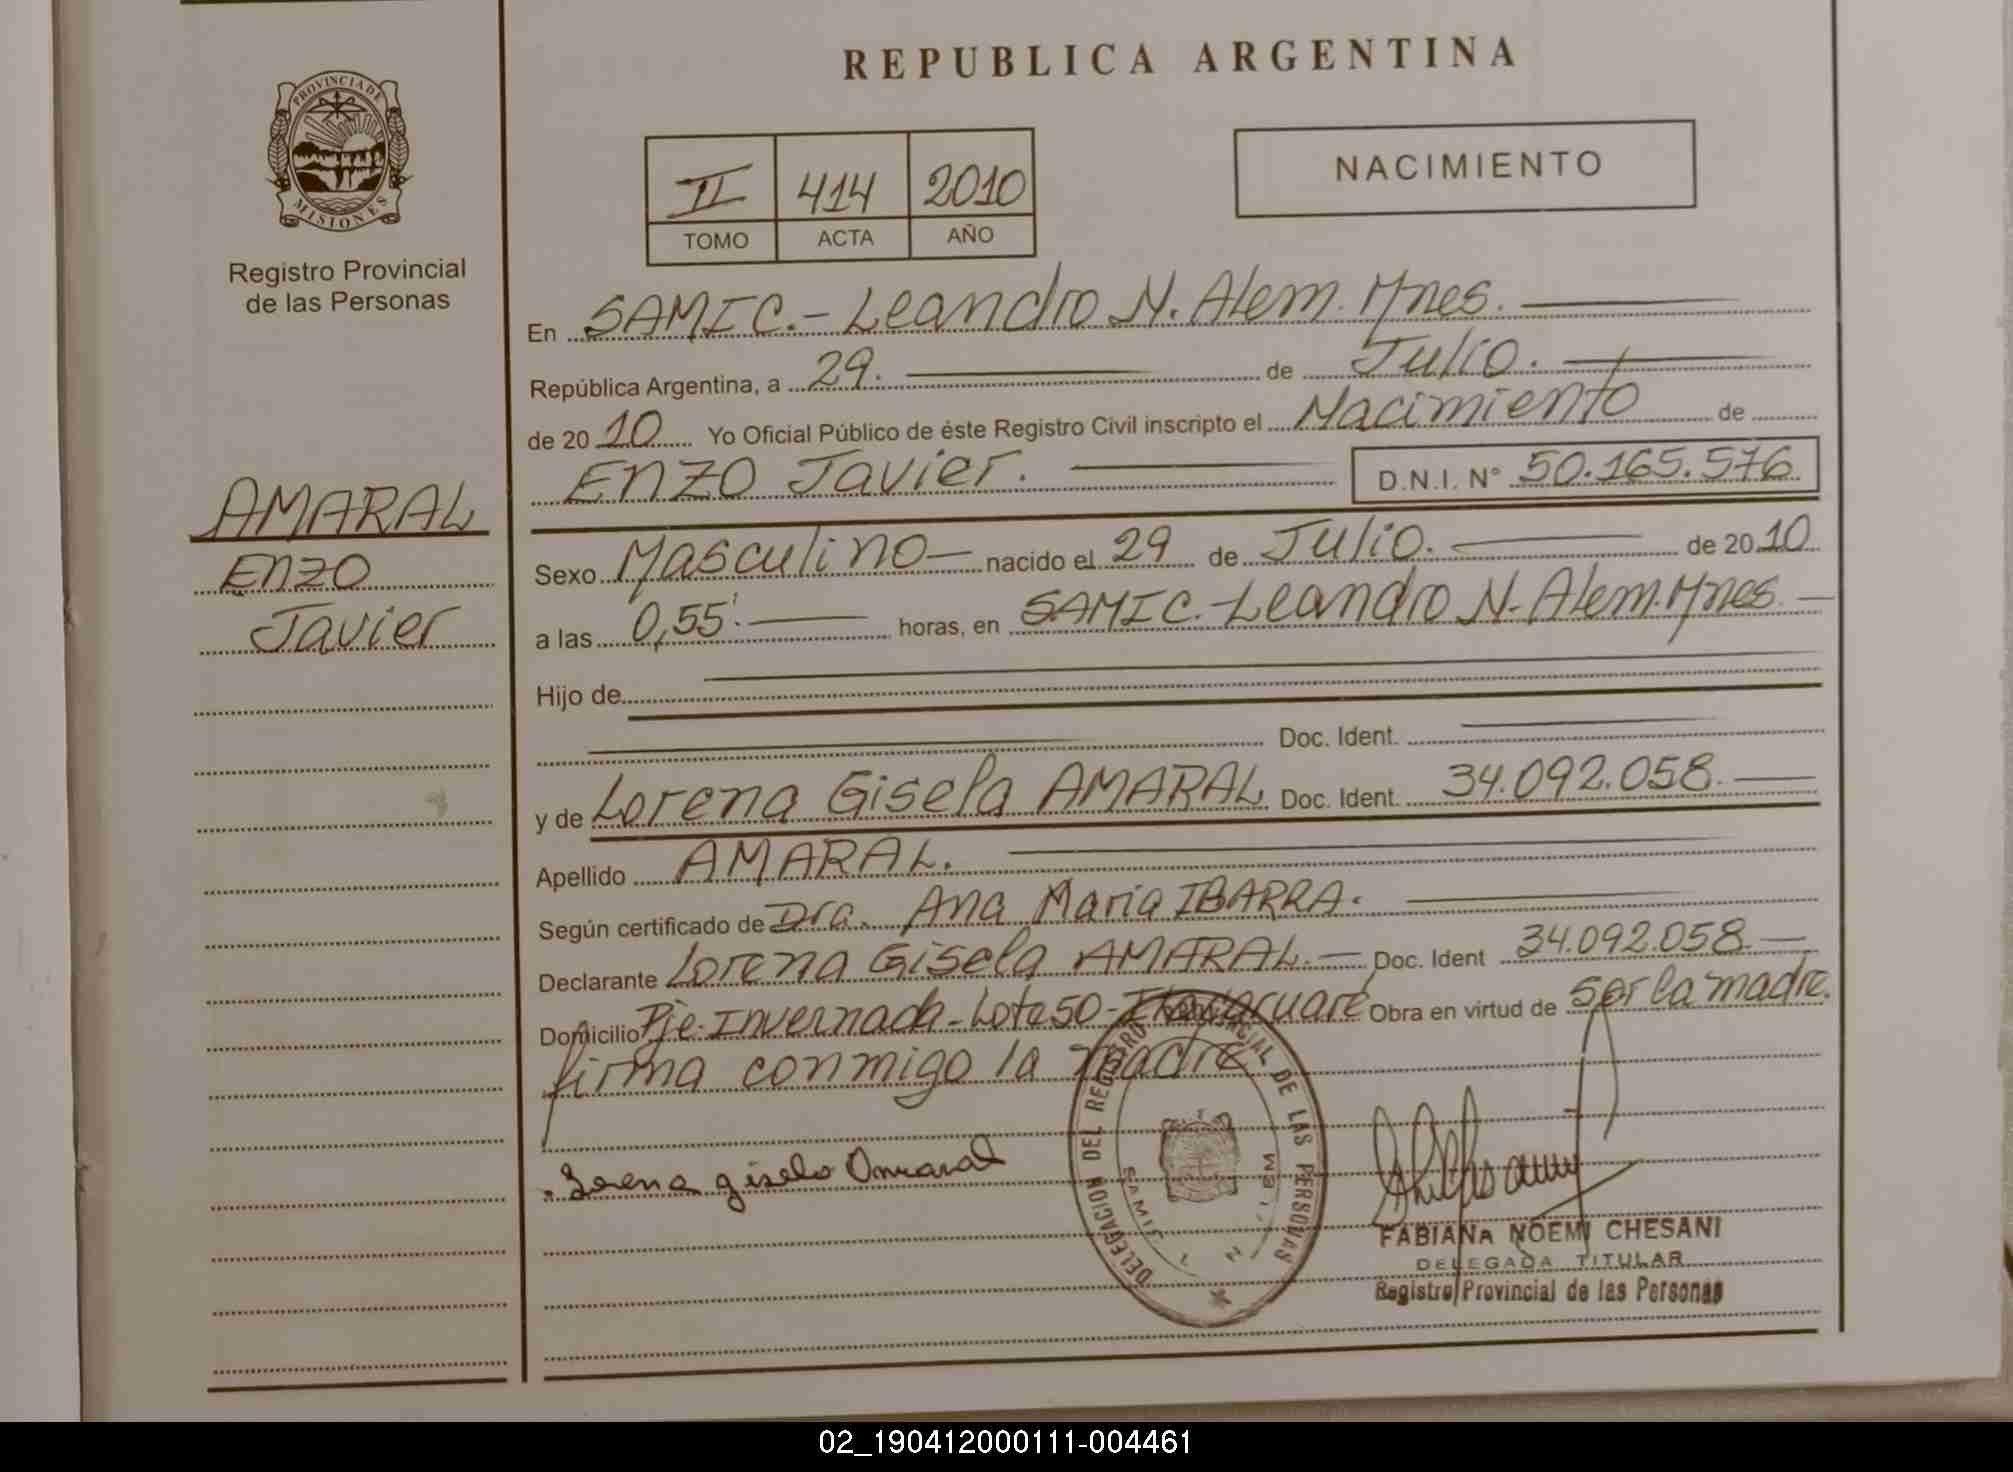 REPUBLICA ARGENTINA
PROVINCIA DE
MISIONES
Registro Provincial
de las Personas
II 414 2010
TOMO ACTA AÑO
NACIMIENTO
En SAMIC.- Leandro N. Alem. Mnes.
República Argentina, a 29. de Julio.
de 20 10 Yo Oficial Público de éste Registro Civil inscripto el Nacimiento de
Enzo Javier. D.N.I. Nº 50.165.576
AMARAL
Enzo
Javier
Sexo Masculino nacido el 29 de Julio. de 20 10
a las 0,55'. horas, en SAMIC.-Leandro N- Alem. Mnes.
Hijo de
Doc. Ident.
y de Lorena Gisela AMARAL Doc. Ident. 34.092.058.
Apellido AMARAL.
Según certificado de Dra. Ana Maria IBARRA.
Declarante Lorena Gisela AMARAL. Doc. Ident 34.092.058.
Domicilio Pje. Invernada - Lote 50 - Itacaruaré Obra en virtud de ser la madre.
firma conmigo la madre
Lorena gisela Amaral
DELEGACION DEL REGISTRO PROVINCIAL DE LAS PERSONAS
SAMIC
FABIANA NOEMI CHESANI
DELEGADA TITULAR
Registro Provincial de las Personas
02_190412000111-004461